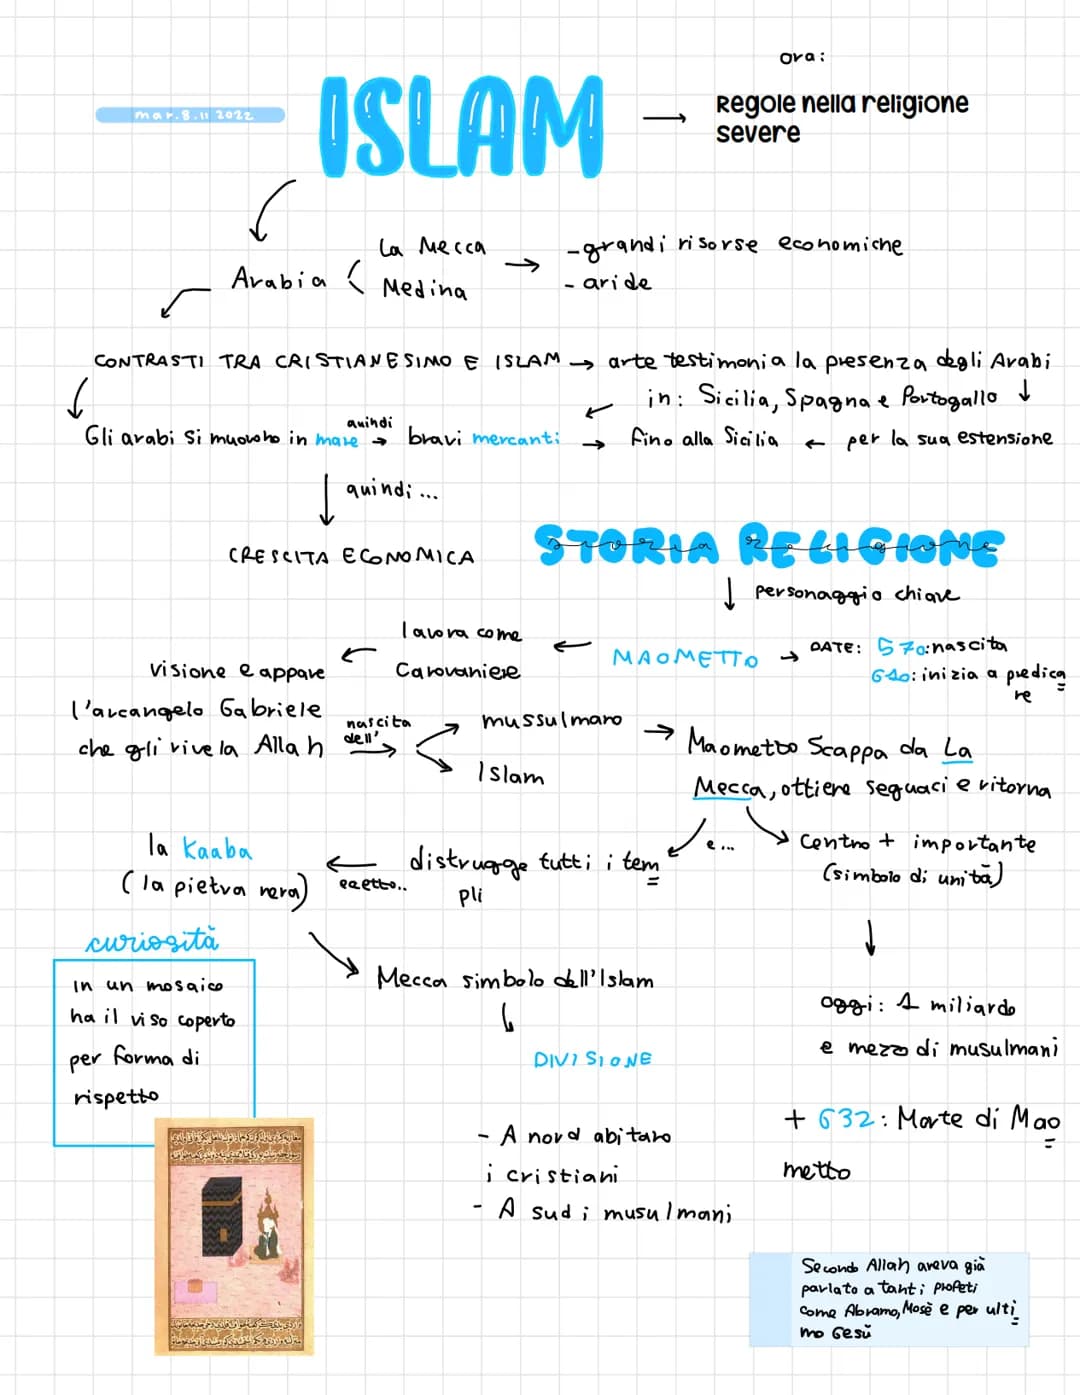 ora:
mar.8.11 2022
ISLAM → Regole nella religione
severe
La Mecca → -grandi risorse economiche
Arabia ( Medina - aride
CONTRASTI TRA CRISTIANESIMO E ISLAM → arte testimonia la presenza degli Arabi ↓
in: Sicilia, Spagna e Portogallo
quindi
Gli arabi si muovono in mare → bravi mercanti → fino alla Sicilia ← per la sua estensione
quindi...
CRESCITA ECONOMICA
STORIA RELIGIONE
storia religione
↓ personaggio chiave
MAOMETTO → DATE: 570: nascita
610: inizia a predica
re
lavora come
Carovaniere
visione e appare
l'arcangelo Gabriele
che gli rivela Allah
nascita
dell'
mussulmano
Islam
Maometto Scappa da La
Mecca, ottiene seguaci e ritorna
e...
Centro + importante
(simbolo di unità)
distrugge tutti i tem
pli
eccetto..
la Kaaba
(la pietra nera)
curiosità
In un mosaico
ha il viso coperto
per forma di
rispetto
Mecca simbolo dell'Islam
DIVISIONE
- A nord abitano
i cristiani
- A sud i musulmani
oggi: 1 miliardo
e mezzo di musulmani
+ 632: Morte di Mao
metto
Secondo Allah aveva già
parlato a tanti profeti
come Abramo, Mosè e per ulti
mo Gesù